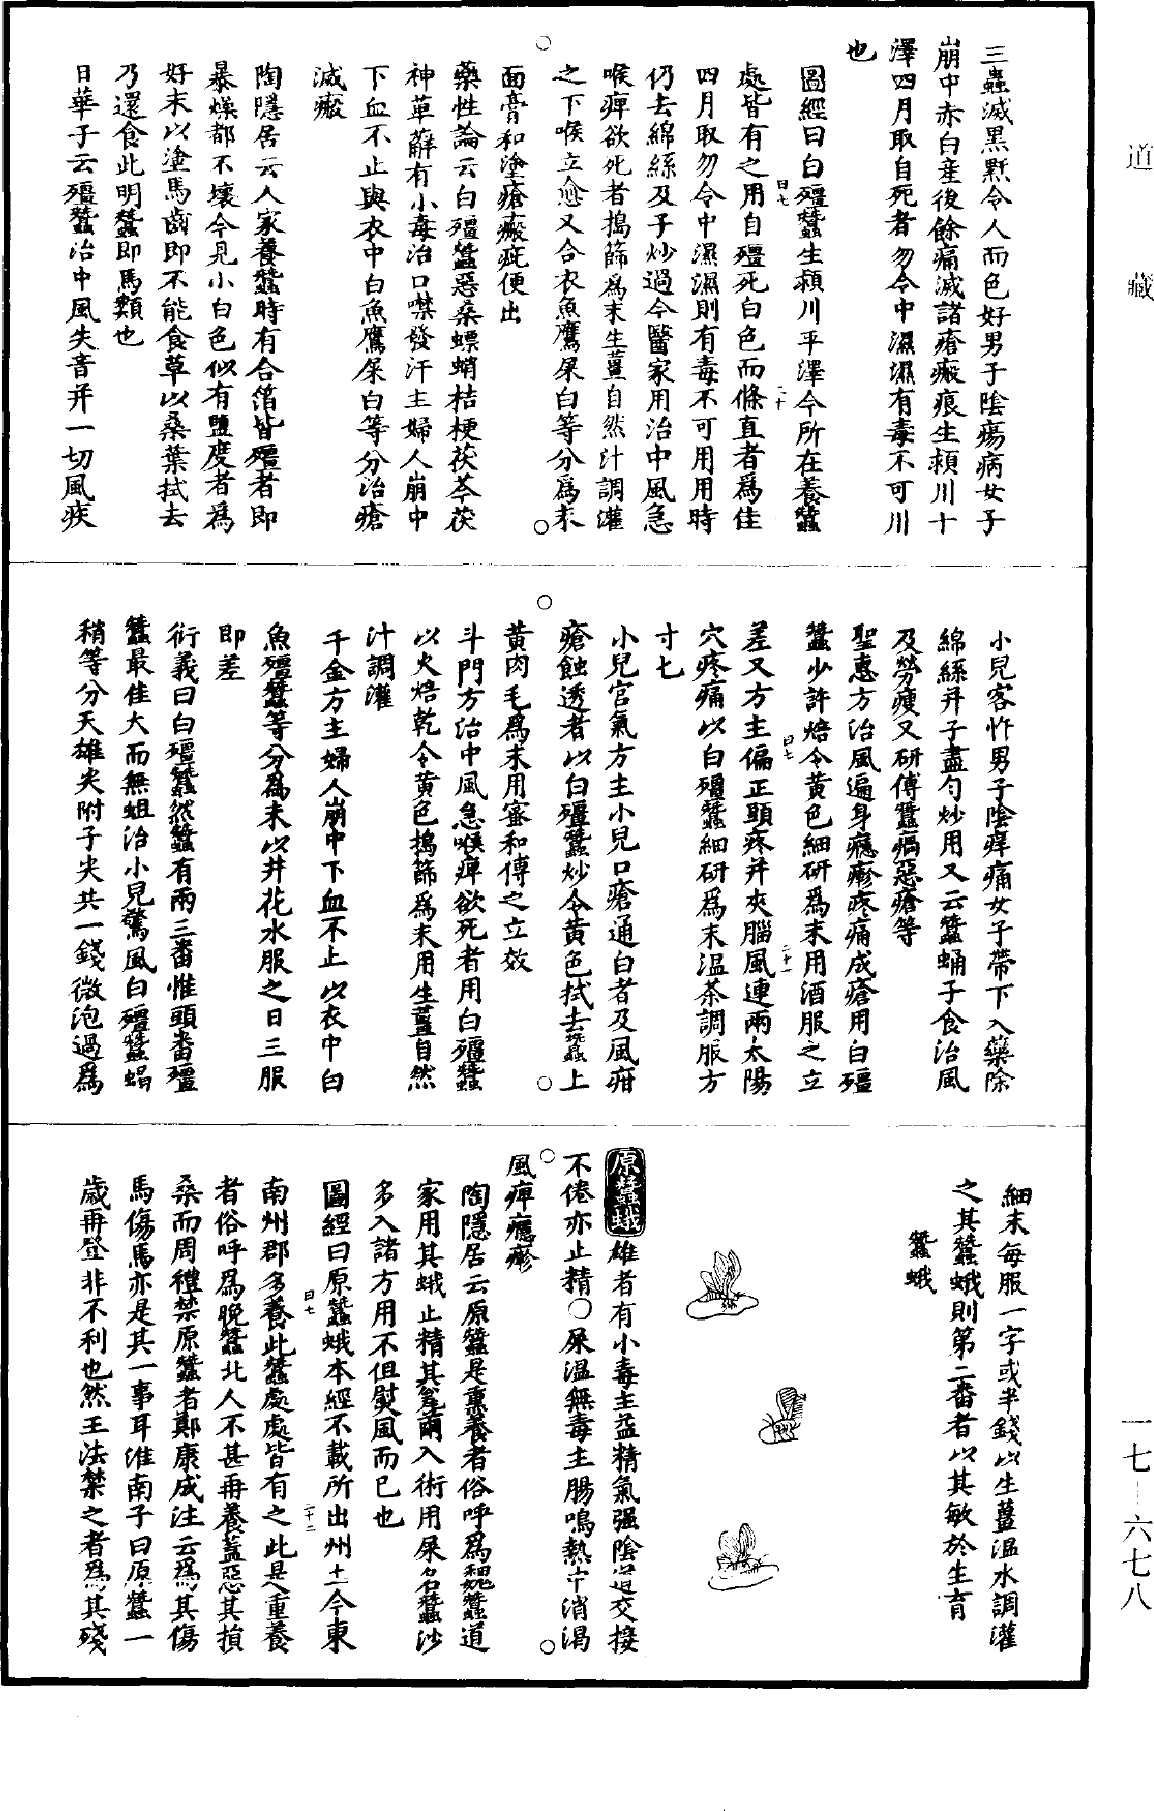 道藏
三蟲滅黑䵟令人面色好男子陰瘍病女子
崩中赤白產後餘痛滅諸瘡瘢痕生潁川平
澤四月取自死者勿令中濕濕有毒不可用
也
圖經曰白殭蠶生潁川平澤今所在養蠶
處皆有之用自殭死白色而條直者爲佳
四月取勿令中濕濕則有毒不可用用時
仍去綿絲及子炒過今醫家用治中風急
喉痺欲死者搗篩爲末生薑自然汁調灌
之下喉立愈又合衣魚鷹屎白等分爲末
面膏和塗瘡瘢疵便出
藥性論云白殭蠶惡桑螵蛸桔梗茯苓茯
神萆薢有小毒治口噤發汗主婦人崩中
下血不止與衣中白魚鷹屎白等分治瘡
滅瘢
陶隱居云人家養蠶時有合箔皆殭者即
暴燥都不壞今見小白色似有鹽度者爲
好末以塗馬齒即不能食草以桑葉拭去
乃還食此明蠶即馬類也
日華子云殭蠶治中風失音并一切風疾
小兒客忤男子陰痒痛女子帶下入藥除
綿絲并子盡勻炒用又云蠶蛹子食治風
及勞瘦又研傅蠶瘑惡瘡等
聖惠方治風遍身癮㾦疼痛成瘡用白殭
蠶少許焙令黄色細研爲末用酒服之立
差又方主偏正頭疼并夾腦風連兩太陽
穴疼痛以白殭蠶細研爲末温茶調服方
寸七
小兒宫氣方主小兒口瘡通白者及風疳
瘡蝕透者以白殭蠶炒令黄色拭去蠶上
黄肉毛爲末用蜜和傅之立效
斗門方治中風急喉痺欲死者用白殭蠶
以火焙乾令黄色搗篩爲末用生薑自然
汁調灌
千金方主婦人崩中下血不止以衣中白
魚殭蠶等分爲末以井花水服之日三服
即差
衍義曰白殭蠶然蠶有兩三番惟頭番殭
蠶最佳大而無蛆治小兒驚風白殭蠶蝎
稍等分天雄尖附子尖共一錢微泡過爲
細末每服一字或半錢以生薑温水調灌
之其蠶蛾則第二番者以其敏於生育
蠶蛾
原蠶蛾雄者有小毒主益精氣强陰道交接
不倦亦止精○屎温無毒主腸鳴熱中消渴
風痺癮㾦
陶隱居云原蠶是熏養者俗呼爲魏蠶道
家用其蛾止精其甕繭入術用屎名蠶沙
多入諸方用不但熨風而已也
圖經曰原蠶蛾本經不載所出州土今東
南州郡多養此蠶處處皆有之此是重養
者俗呼爲晚蠶北人不甚再養蓋惡其損
桑而周禮禁原蠶者鄭康成注云爲其傷
馬傷馬亦是其一事耳淮南子曰原蠶一
歲再登非不利也然王法禁之者爲其殘
一七—六七八